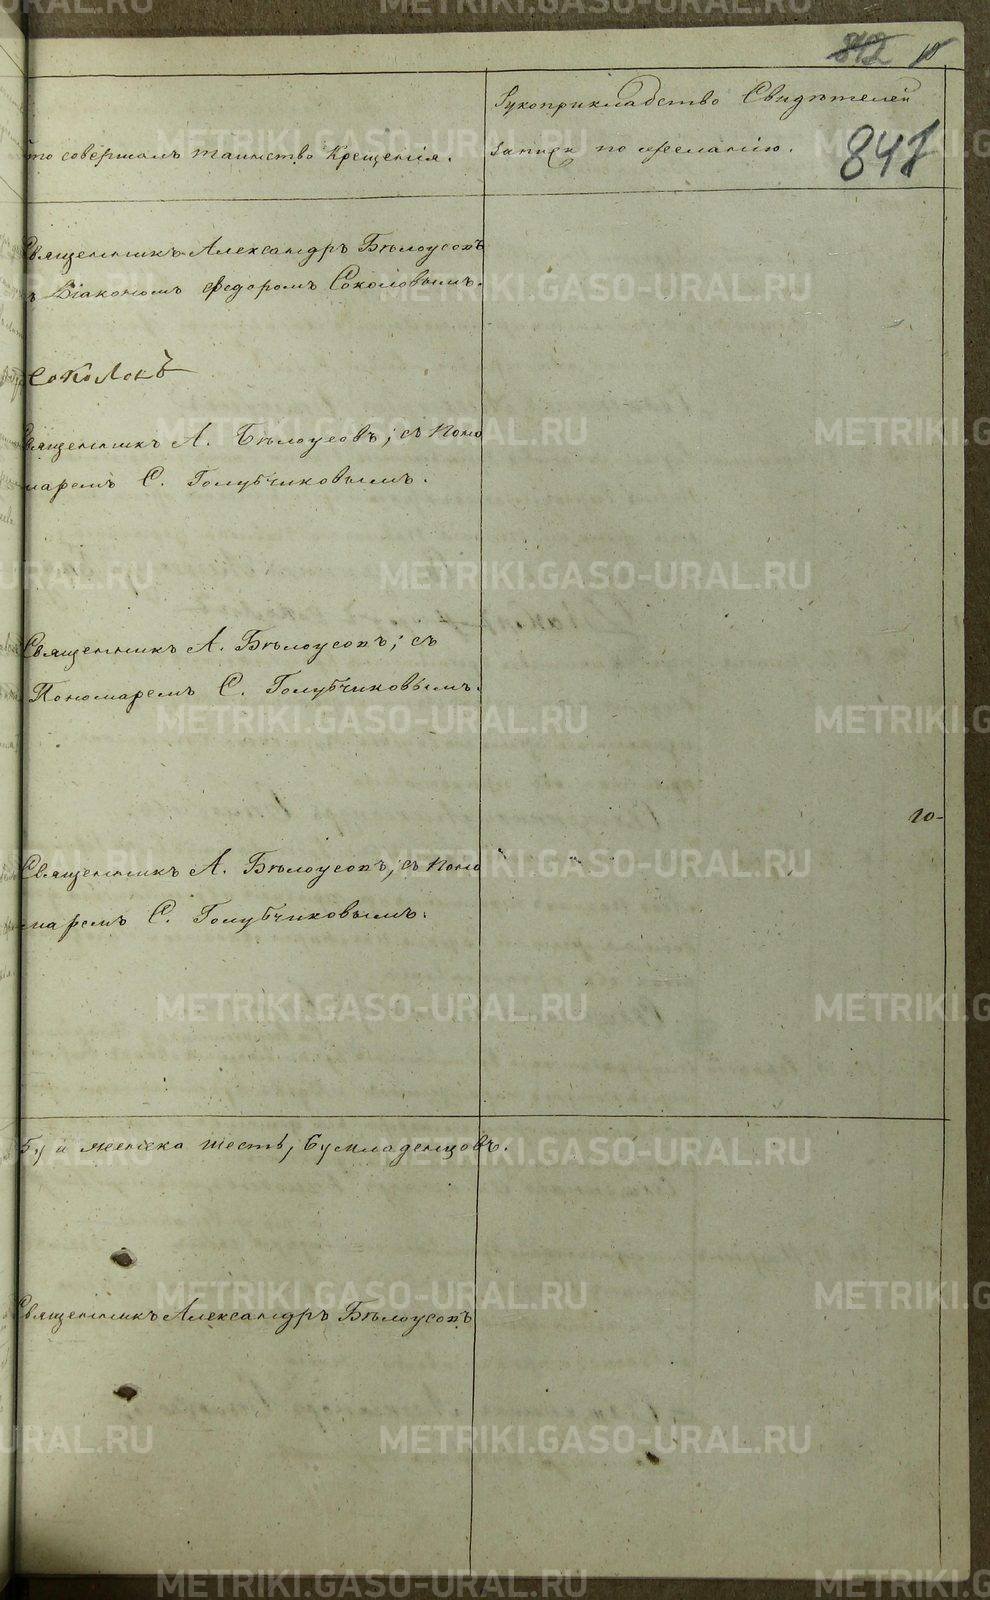 842 10
Рукоприкладство Свидѣтелей
то совершалъ таинство Крещенія.
записи по желанію.
841
Священникъ Александръ Бѣлоусовъ
съ Діакономъ Федоромъ Соколовымъ.
Соколовъ
Священникъ А. Бѣлоусовъ; съ Поно
маремъ С. Голубчиковымъ.
Священникъ А. Бѣлоусовъ; съ
Пономаремъ С. Голубчиковымъ.
10-
Священникъ А. Бѣлоусовъ; съ Поно
маремъ С. Голубчиковымъ.
5, и женска шесть, 6, младенцовъ.
Священникъ Александръ Бѣлоусовъ
METRIKI.GASO-URAL.RU